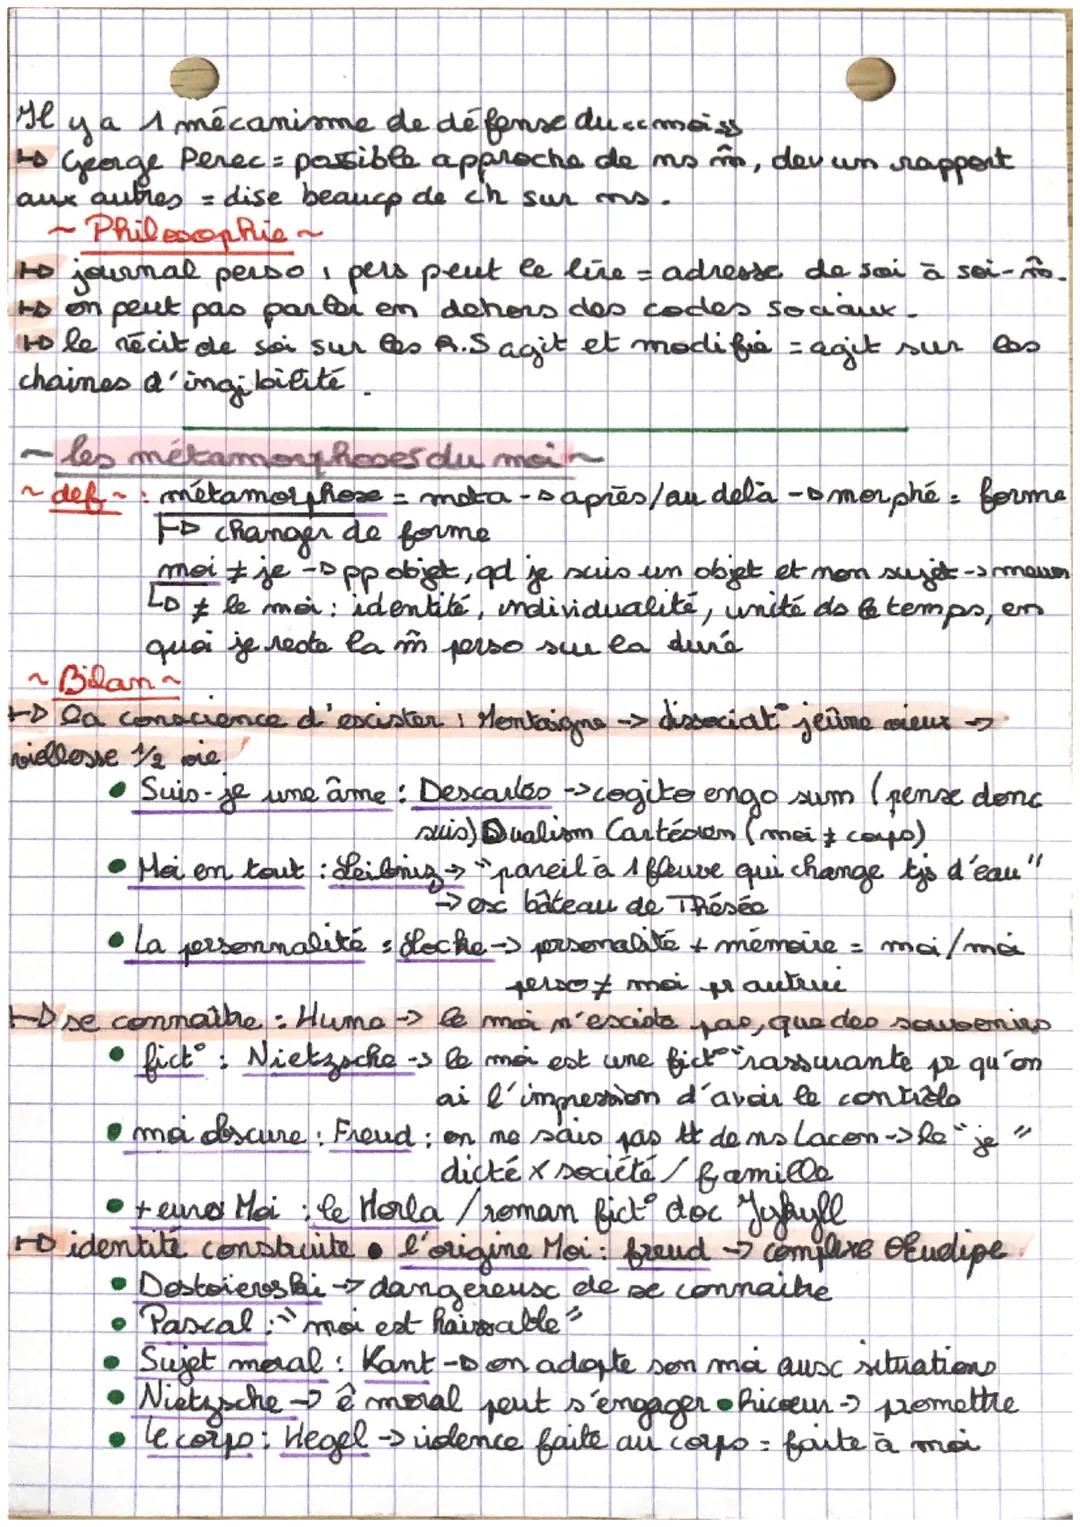 Il y a 1 mécanisme de défense du «moi»
↳ George Perec = possible approche de ns m̂, dev un rapport
aux autres = dise beaucp de ch sur ns.
~ Philosophie ~
↳ journal perso, pers peut le lire = adresse de soi à soi-m̂.
↳ on peut pas parler en dehors des codes sociaux.
↳ le récit de soi sur les R.S agit et modifie = agit sur les
chaines d'
~ les métamorphoses du moi ~
~ def ~ : métamorphose = meta -> après/au delà -> morphé = forme
↳ changer de forme
moi ≠ je -> pp objet, qd je suis un objet et non sujet ->
↳ ≠ le moi : identité, individualité, unité ds le temps, en
quoi je reste la m̂ perso sur la duré
~ Bilan ~
↳ la conscience d'exister : Montaigne -> dissociat° jeûne vieux ->
viellesse 1/2 vie
• Suis-je une âme : Descartes -> cogito engo sum (pense donc
suis) Dualism Cartésien (moi ≠ corps)
• Moi en tout : Leibniz -> "pareil à 1 fleuve qui change tjs d'eau"
-> ex bâteau de Thésée
• La personnalité : Locke -> personalité + mémoire = moi/moi
perso ≠ moi pr autrui
↳ se connaître : Hume -> le moi n'existe pas, que des souvenirs
• fict° : Nietzsche -> le moi est une fict° rassurante pr qu'on
ai l'impression d'avoir le contrôle
• moi obscure : Freud : on ne sais pas tt de ns Lacan -> le "je"
dicté x société / famille
• + eurs Moi : le Horla / roman fict° doc Jykyll
↳ identité construite • l'origine Moi : freud -> complexe OEudipe
• Dostoïevski -> dangereux de se connaitre
• Pascal : "moi est haïssable"
• Sujet moral : Kant -> on adapte son moi aux situations
• Nietzsche -> ê moral peut s'engager • Ricoeur -> promettre
• le corps : Hegel -> violence faite au corps = faite à moi